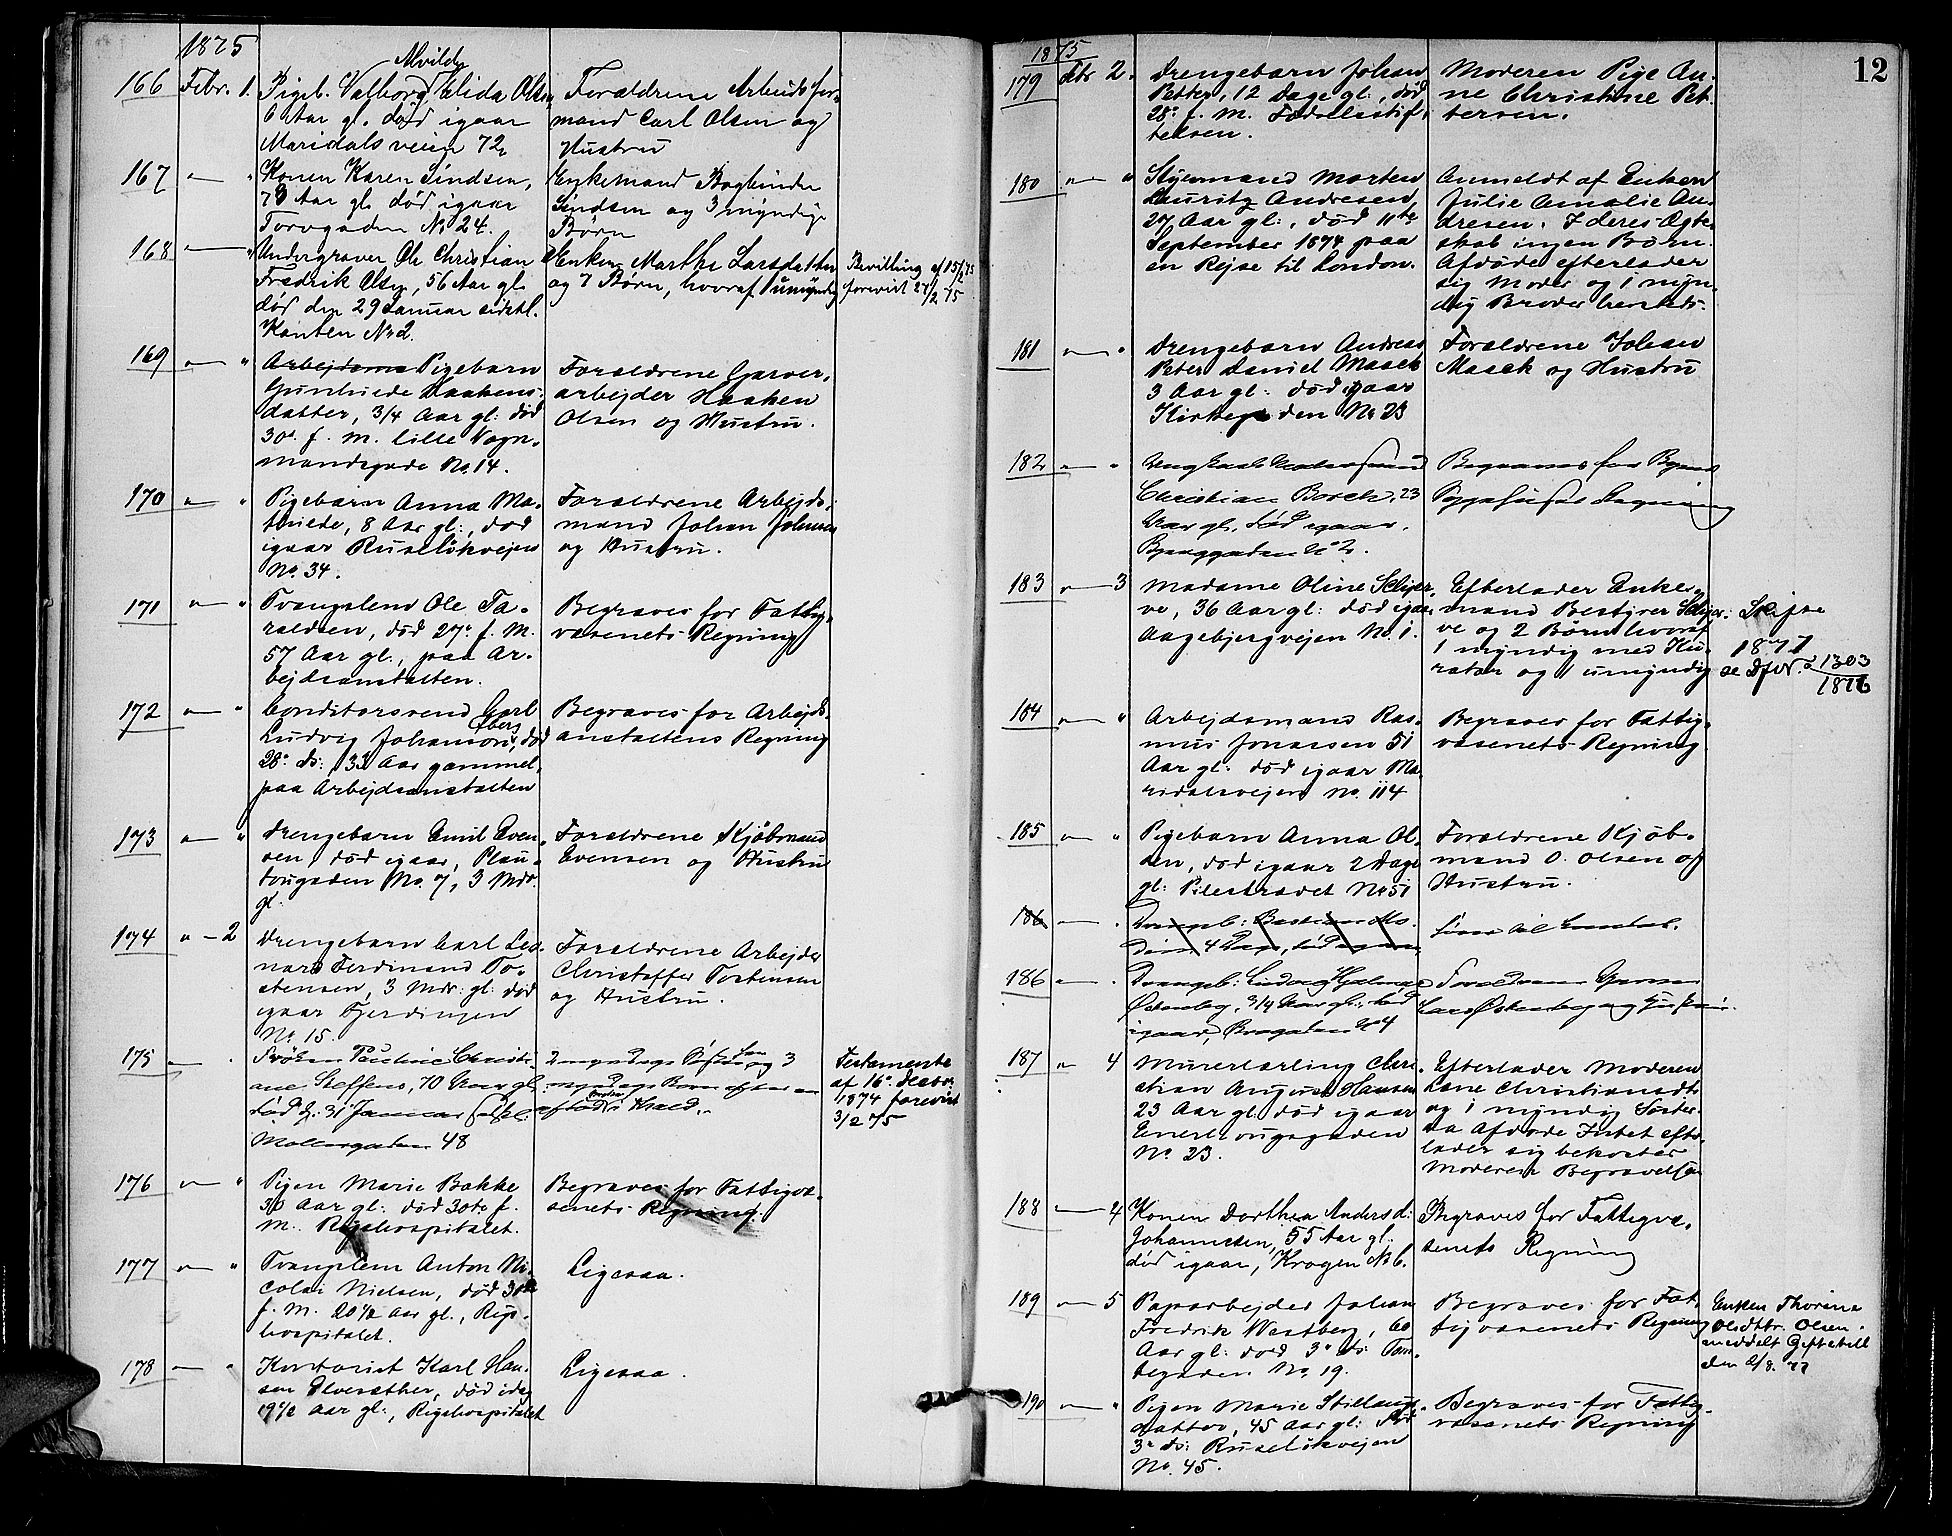 1875
166 Febr. 1. Pigeb. Valborg Alvilde Elida Olsen
6 Aar gl. død igaar
Maridalsveien 72,
Forældrene Arbeidsfor-
mand Carl Olsen og
Hustru
167 — " Konen Karen Lindsen,
73 Aar gl. død igaar
Torvgaden No 24.
Enkemand Bogbinder
Lindsen og 3 myndige
Børn
168 — " Undergraver Ole Christian
Fredrik Olsen, 56 Aar gl.
død den 29 Januar sidstl.
Kanten No 2.
Enken Marthe Larsdatter
og 7 Børn, hvoraf 1 umyndig
Bevilling af 15/2 75
forevist 27/2 75
169 — " Arbejdsma Pigebarn
Haakens-
datter, 3/4 Aar gl: død
30t f. m. lille Vogn-
mandsgade No. 14.
Forældrene Garver-
arbejder Haaken
Olsen og Hustru.
170 — " Pigebarn Anna Ma-
thiede, 8 Aar gl:, død
igaar Ruseløkvejen
No. 34.
Forældrene Arbejds-
mand Johan Johnsen
og Hustru.
171 — " Tvangslem Ole Ta-
raldsen, død 27. f. M.
57 Aar gl., paa Ar-
bejdsanstalten.
Begraves for Fattig-
væsenets Regning
172 — " Conditorsvend Carl
Ludvig Johanson, død
28. ds: 33 Aar gammel,
paa Arbejdsanstalten
Begraves for Arbejds-
anstaltens Regning
173 — " Drengebarn Emil Even-
sen, død igaar, Plau-
tougaden No. 7, 3 Mdr.
gl.
Forældrene Kjøbmand
Evensen og Hustru
174 — 2 Drengebarn Carl Leo-
nard Ferdinand To-
stensen, 3 Mdr: gl: død
igaar Fjerdingen
No. 15.
Forældrene Arbejder
Christoffer Tostensen
og Hustru.
175 — . Frøken Pauline Christi-
ane Steffens, 70 Aar gl.
død d: 31 Januar sidstl.
Møllergaden 48
2 myndige og 3
myndige Børn efter en
afdød
Testamente
af 16. Decbr.
1874 forevist
3/2 75
176 — " Pigen Marie Bakke
30 Aar gl: død 30te f.
m. Rigshospitalet.
Begraves for Fattigvæ-
senets Regning.
177 — " Tvangslem Anton Ni-
colai Nielsen, død 30te
f. M. 20 1/2 Aar gl., Rigs-
hospitalet.
Ligesaa.
178 — " Kontorist Karl Han-
sen Elvesæther, død idag
19 1/2 Aar gl:, Rigshospitalet
Ligesaa.
1875
12
179 Febr 2. Drengebarn Johan
Petter, 12 Dage gl., død
28. f. M. Fødselsstif-
telsen.
Moderen Pige An-
ne Christine Pet-
tersen.
180 — " Styrmand Morten
Lauritz Andresen,
27 Aar gl:, død 11te
September 1874 paa
en Rejse til London.
Anmeldt af Enken
Julie Amalie An-
dresen. I deres Ægte-
skab ingen Børn.
Afdøde efterlader
sig Moder og 1 myn-
dig Broder
181 — " Drengebarn Andreas
Peter Daniel Maack
3 Aar gl: død igaar
Kirkegaden No 23
Forældrene Johan
Maack og Hustru
182 — "
Christian Borch, 23
Aar gl, død igaar.
Begraves for Byens
Regning
183 — 3 Madame Oline Schjer-
ve, 36 Aar gl: død igaar
Aagebjergvejen No. 1.
Efterlader Enke-
mand Bestyrer Schjer-
ve og 2 Børn hvoraf
1 myndig med Ku-
rator og 1 umyndig
Skifte
1877
se 1303
1876
184 — " Arbejdsmand Ras-
mus Jonassen 51
Aar gl: død igaar Ma-
ridalsvejen No. 114
Begraves for Fattig-
væsenets Regning
185 — " Pigebarn Anna Ol-
sen, død igaar 2 Dage
gl: Pilestrædet No 51
Forældrene Kjøb-
mand O. Olsen og
Hustru.
186 — . Drengeb:
4 Dage, død igaar
186 — . Drengeb: Ludvig Hjalmar
Østenberg, 3/4 Aar gl:, død
igaar, No 4
Forældrene
Lars Østenberg og Hustru.
187 — 4 Murerlærling Chri-
stian August Hansen
23 Aar gl: død igaar
Enerhougsgaden
No. 23.
Efterlader Moderen
Lene Christiansdtr
og 1 myndig Søster.
Da Afdøde Intet efter-
lader sig bekoster
Moderen Begravelsen
188 — 4 Konen Dorthea Andersd:
Johannesen, 55 Aar gl.
død igaar, Krogen No 6.
Begraves for Fattigvæ-
senets Regning
189 — 5 Paparbejder Johan
Fredrik Westberg, 60
Aar gl: død 3. ds: Tom-
tegaden No. 19.
Begraves for Fat-
tigvæsenets Regning
Enken Thorine
Olsdtr. Olsen
meddelt Gifteseddel
den 2/8. 77
190 — " Pigen Marie
datter, 45 Aar gl: død
3. ds: Ruseløkvejen
No. 45.
Begraves for Fattig-
væsenets Regning